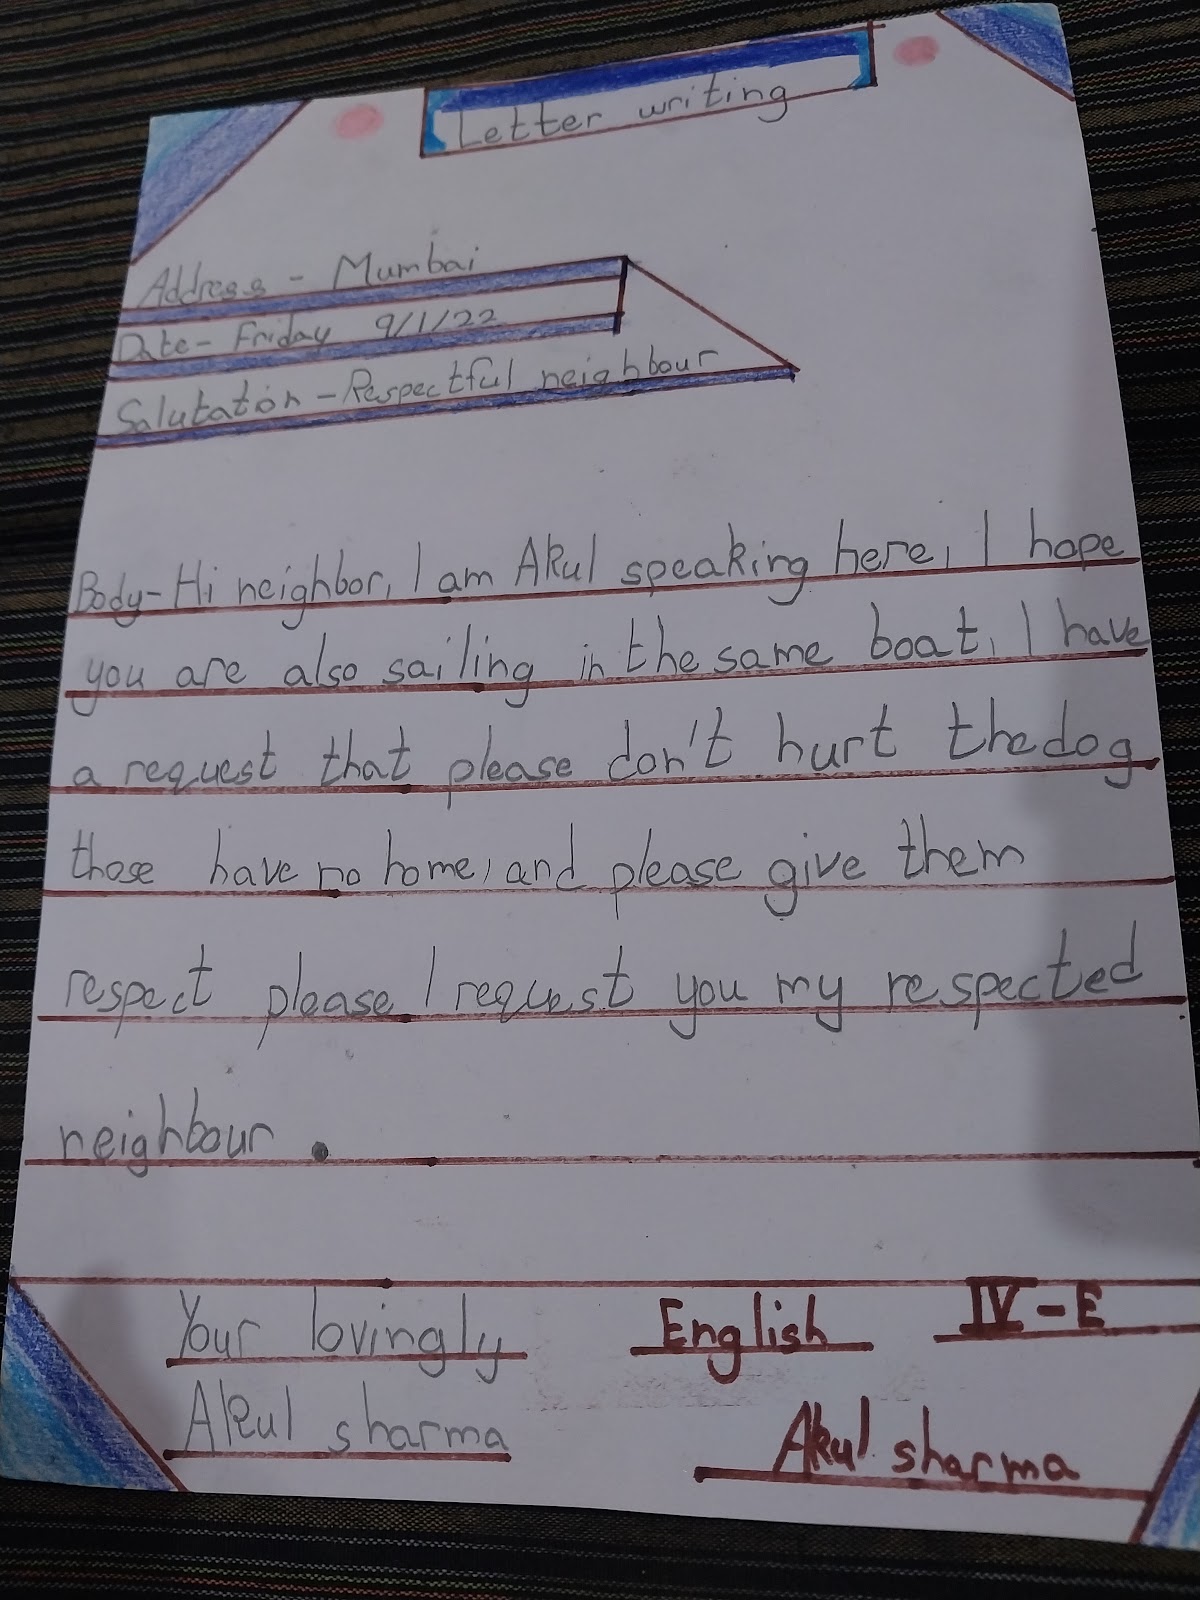 Letter writing
Address - Mumbai
Date - Friday 9/1/22
Salutation - Respectful neighbour
Body - Hi neighbor, I am Akul speaking here, I hope
you are also sailing in the same boat, I have
a request that please don't hurt the dog
those have no home, and please give them
respect please I request you my respected
neighbour .
Your lovingly
Akul sharma
English IV-E
Akul sharma